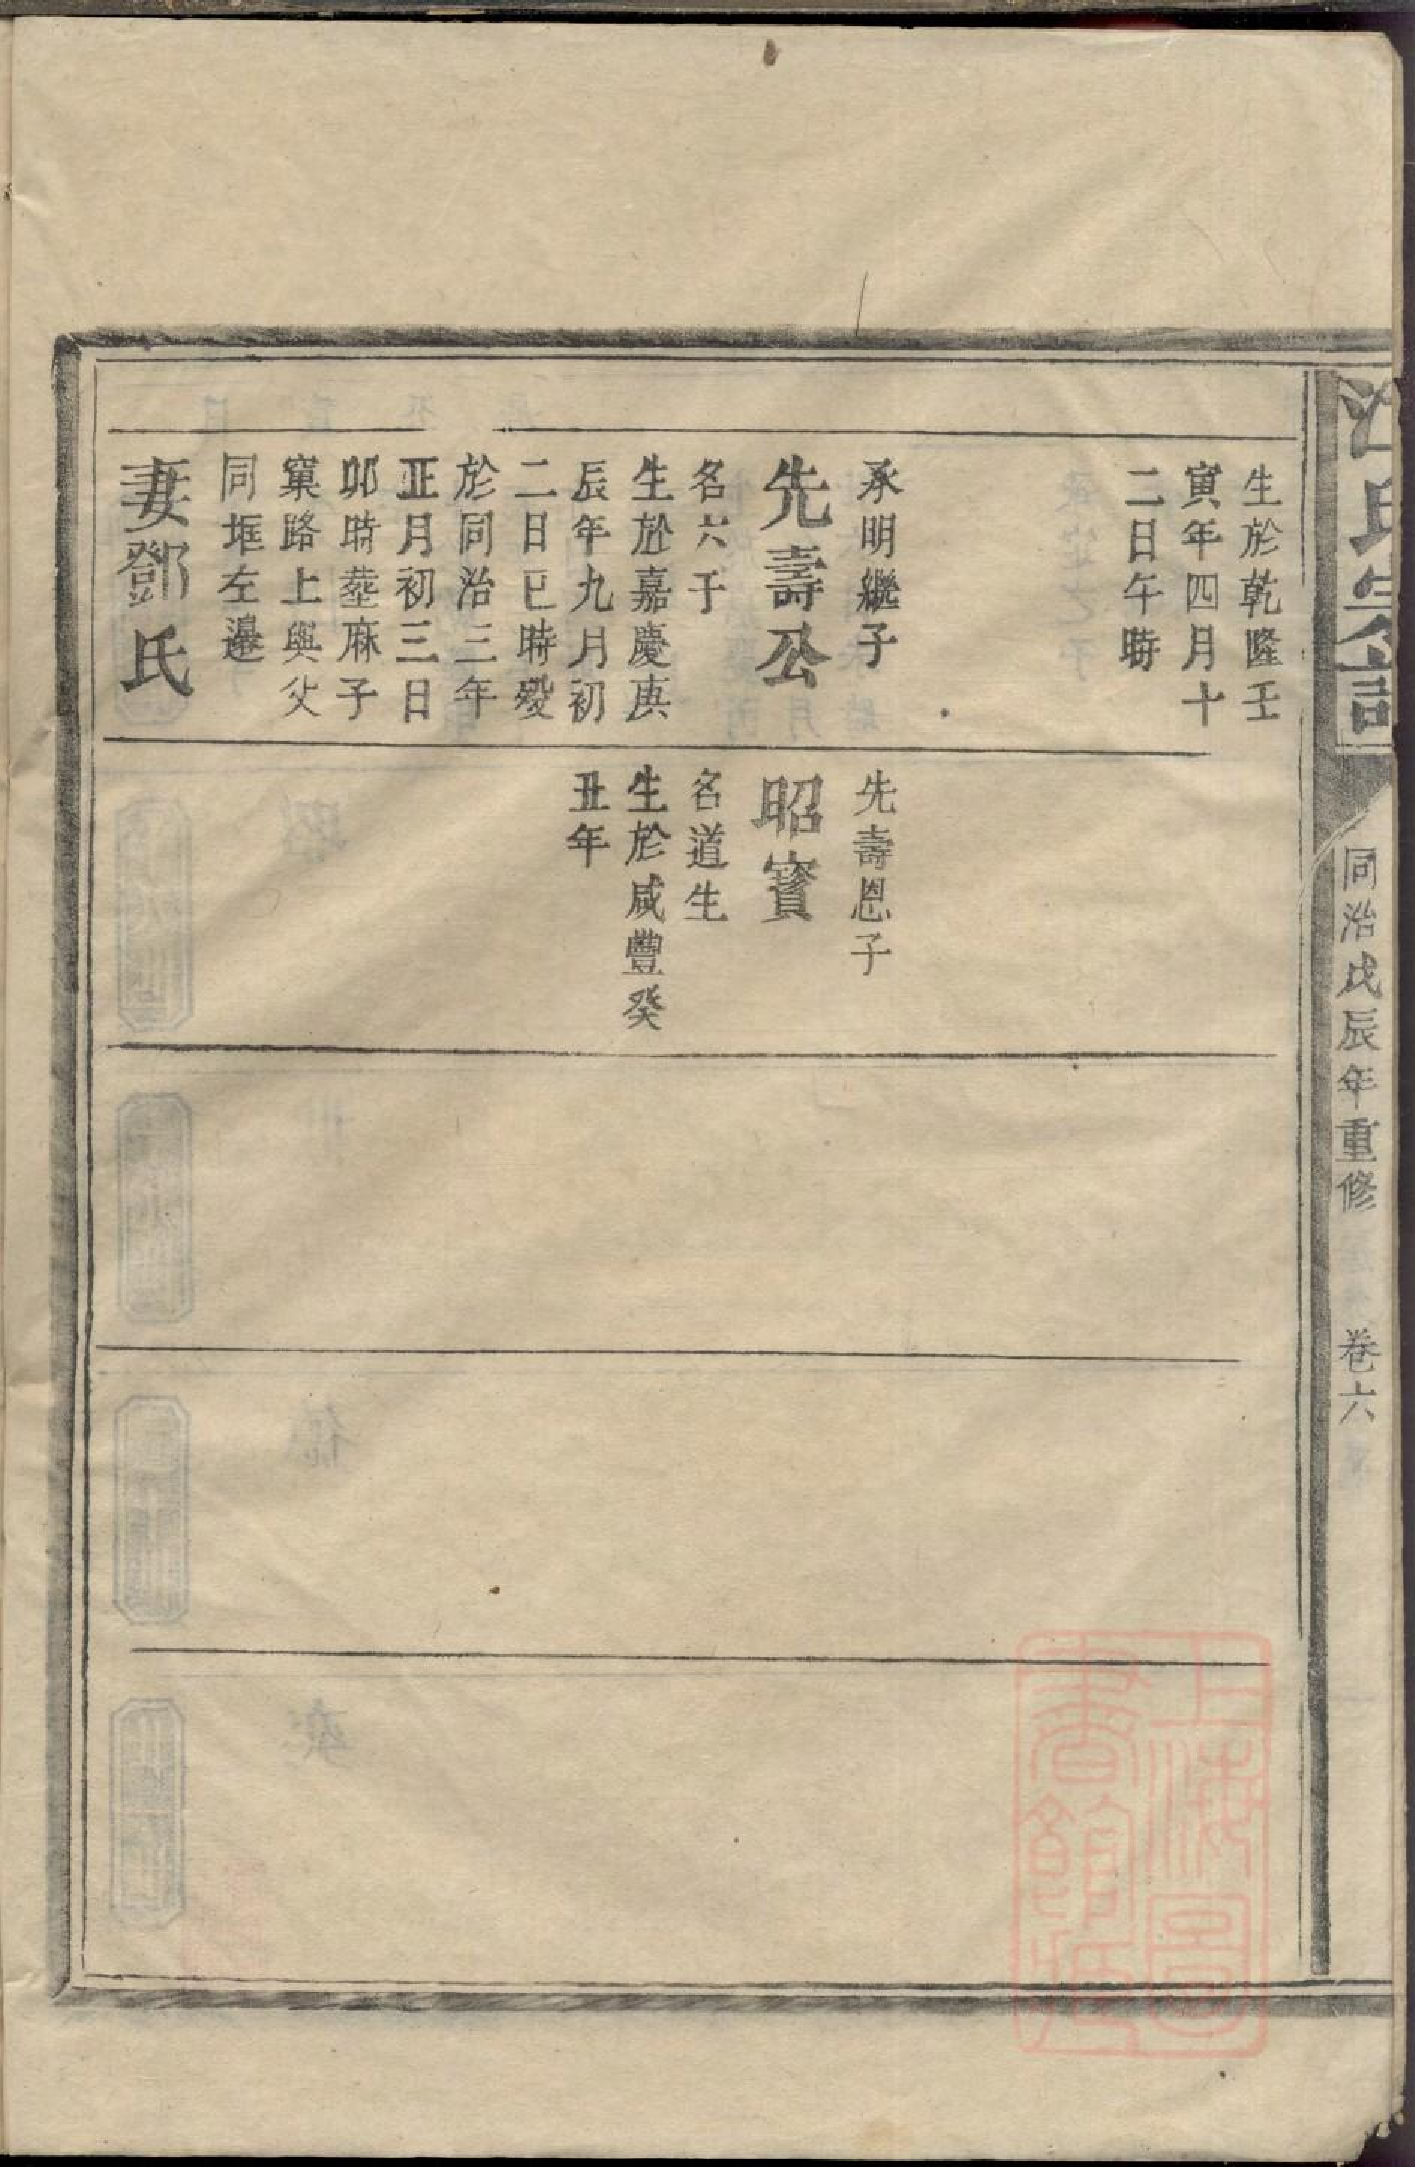 氏宗譜
同治戊辰年重修
卷六
生於乾隆壬
寅年四月十
二日午時
承明繼子
先壽公
名六于
生於嘉慶庚
辰年九月初
二日巳時歿
於同治三年
正月初三日
卯時塟麻子
窠路上與父
同堆左邊
妻鄧氏
先壽恩子
昭寳
名道生
生於咸豐癸
丑年
上海圖
書館藏